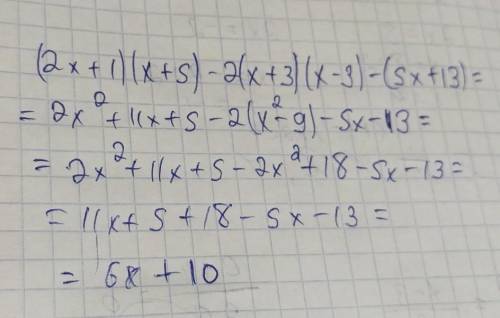 (2x+1)(x+5)-2(x+3)(x-3)-(5x+13)=
=2x²+11x+5-2(x²-9)-5x-13=
=2x²+11x+5-2x²+18-5x-13=
=11x+5+18-5x-13=
=6x+10